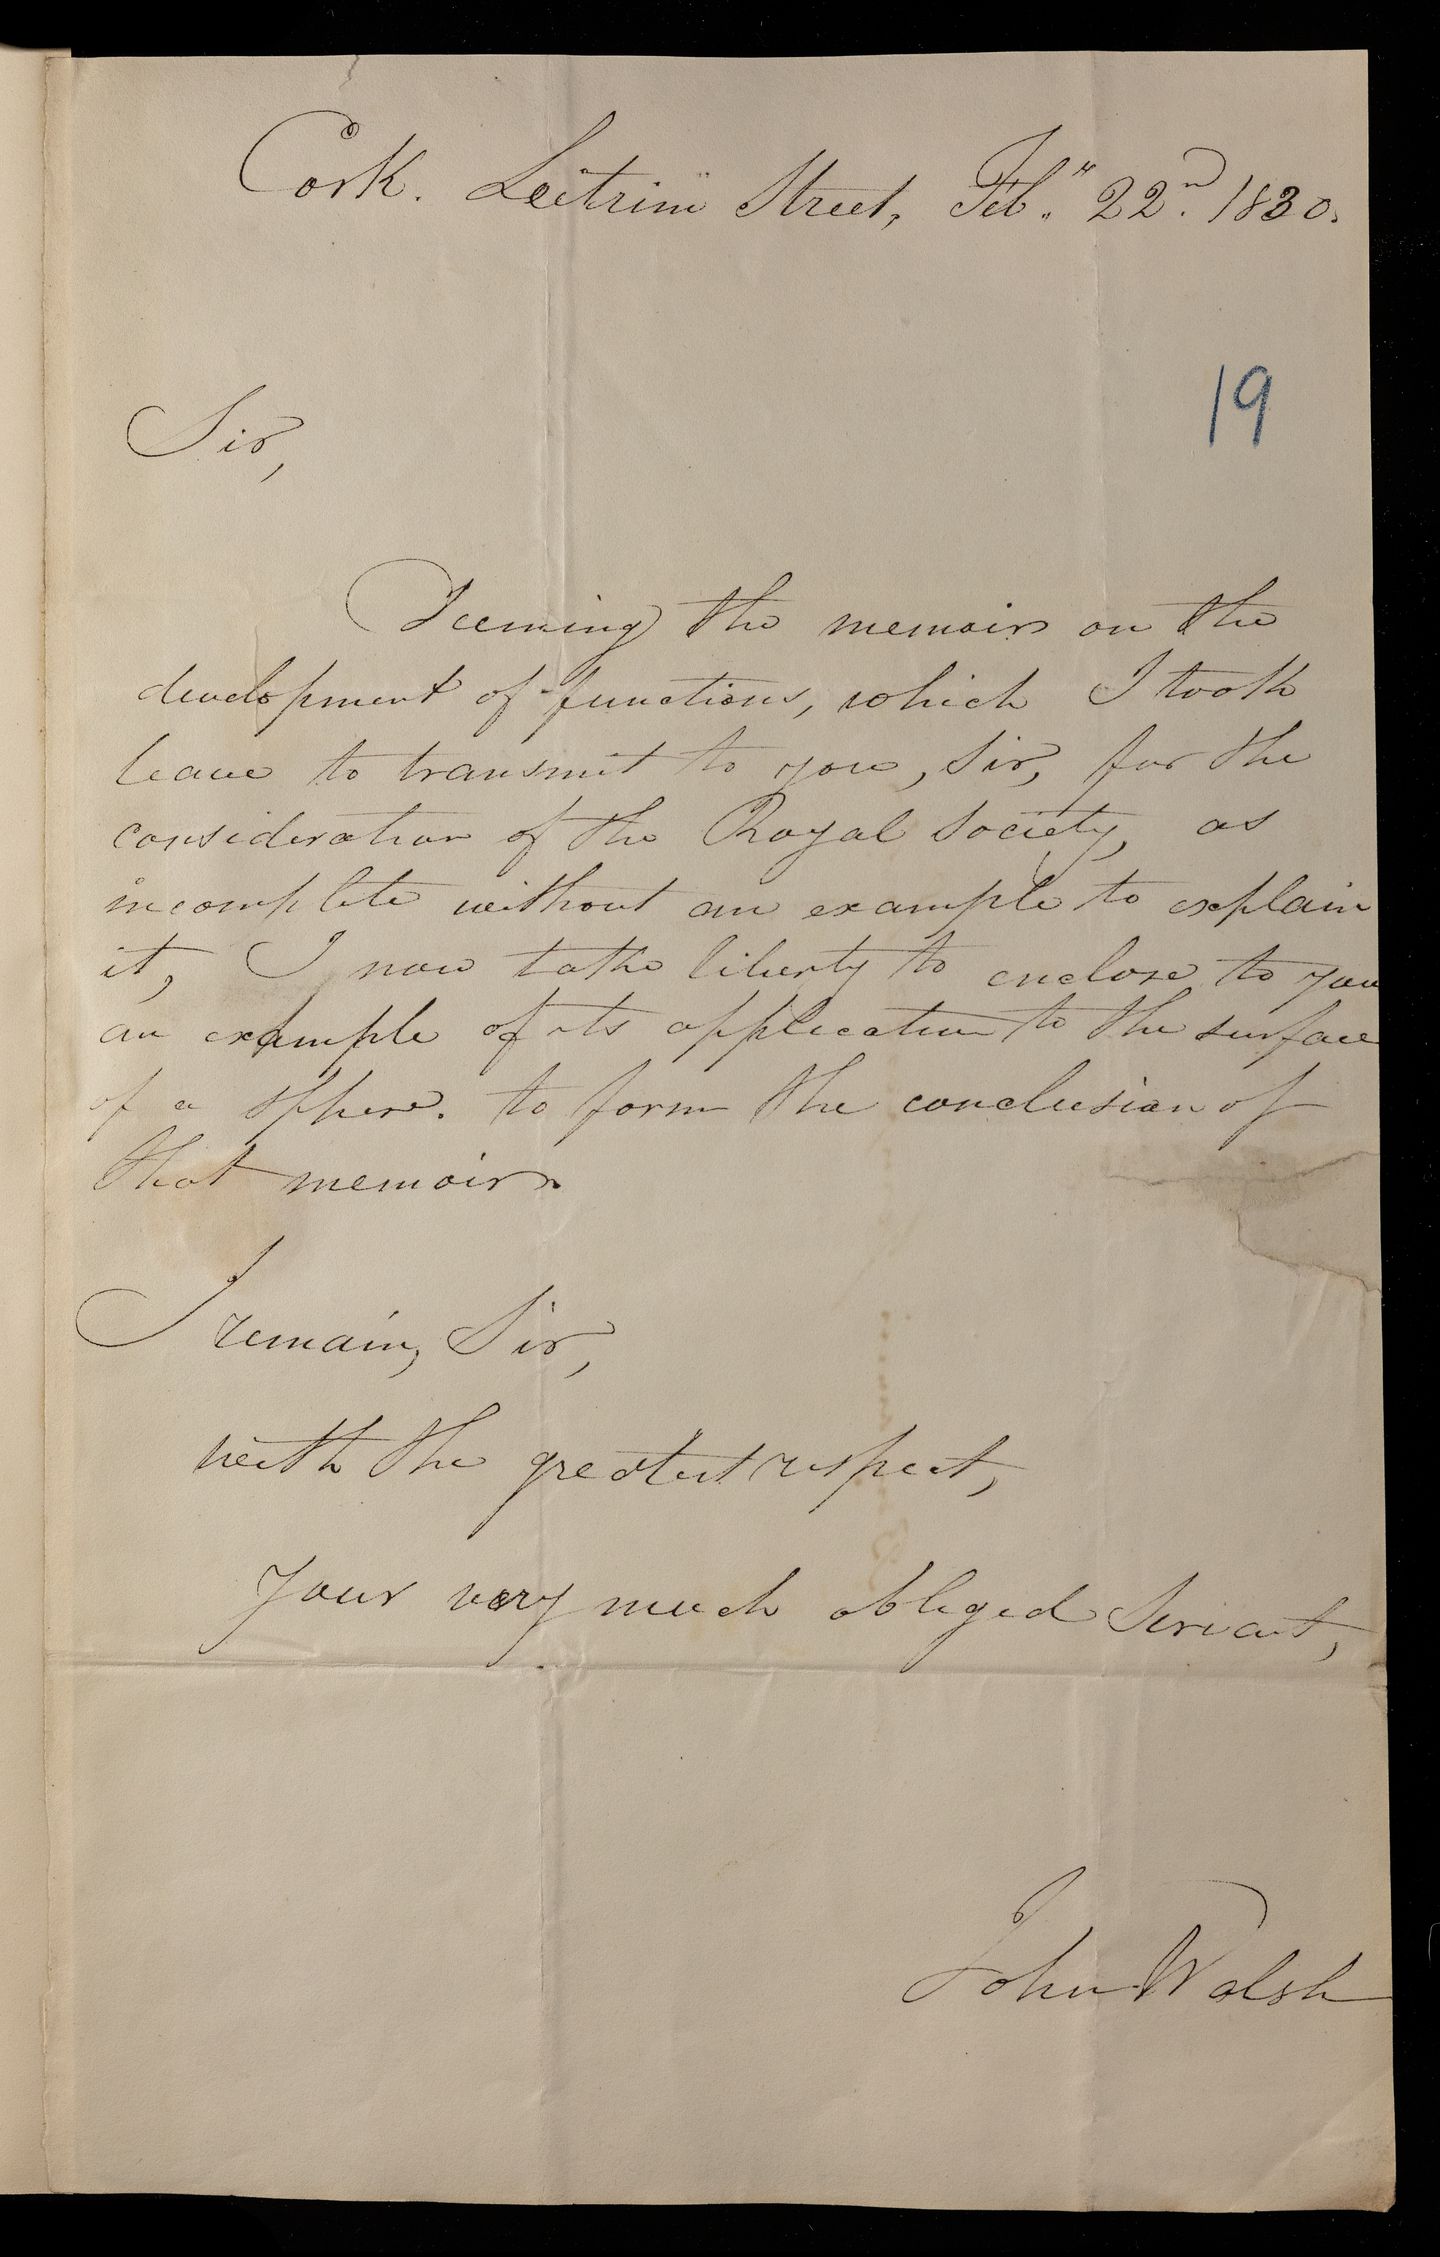 Cork. Leitrim Street, Feb.ry 22.nd 1830.
19
Sir,
Deeming the memoir on the
development of functions, which I took
leave to transmit to you, Sir, for the
consideration of the Royal Society, as
incomplete without an example to explain
it, I now take liberty to enclose to you
an example of its application to the surface
of a sphere. to form the conclusion of
that memoir.
I remain, Sir,
with the greatest respect,
Your very much obliged Servant,
John Walsh